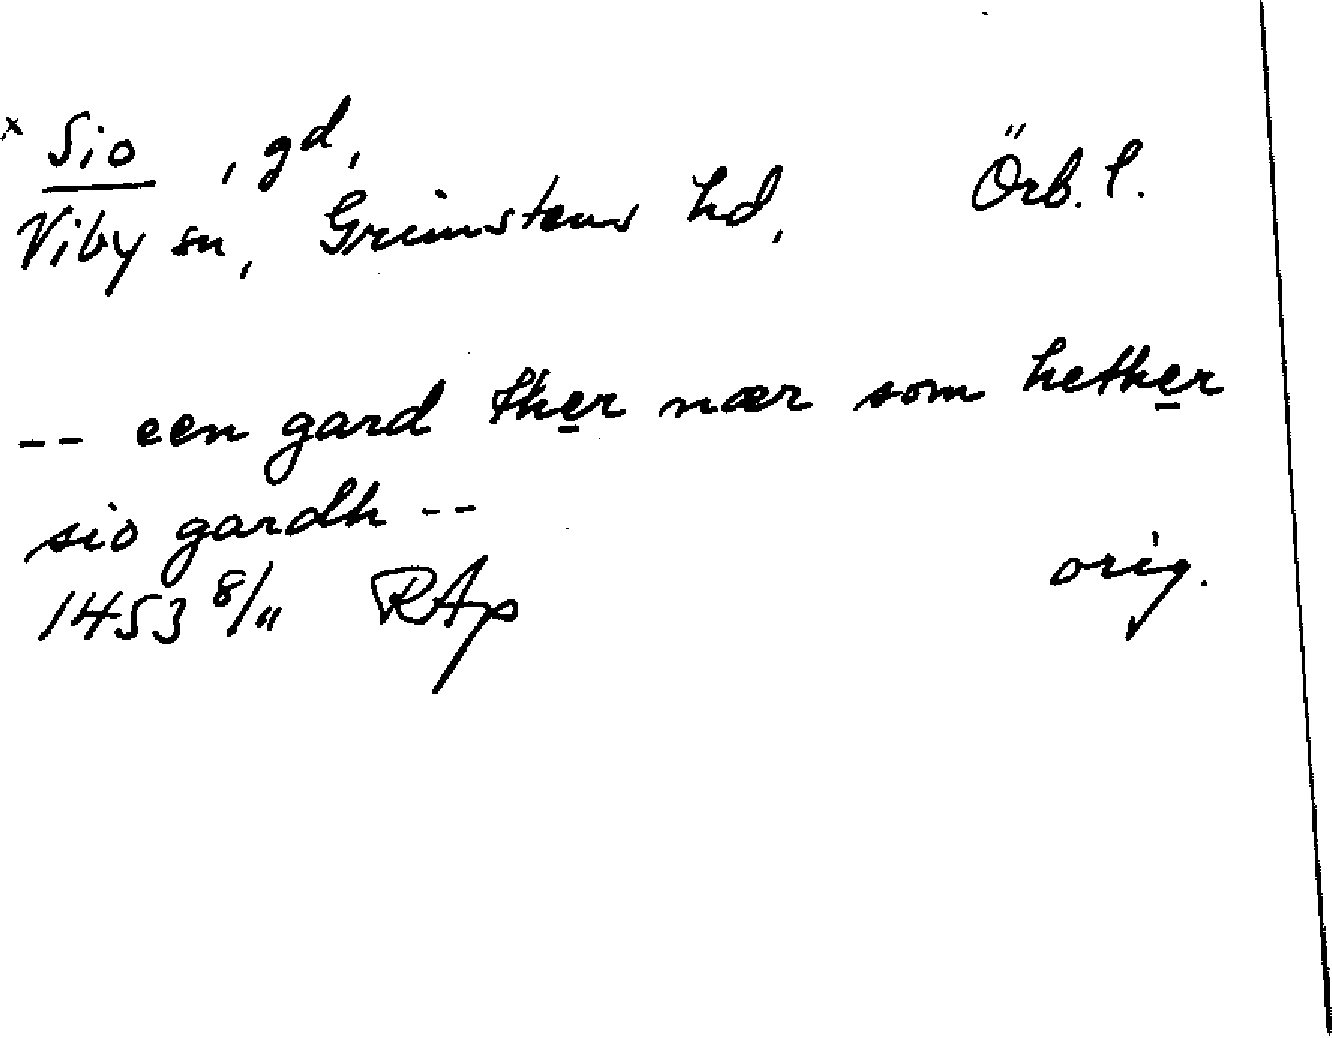 x Sio , gd,
Viby sn, Grimstens hd, Örb. l.
-- een gard ther nær som hether
sio gardh --
1453 8/11 RAp orig.